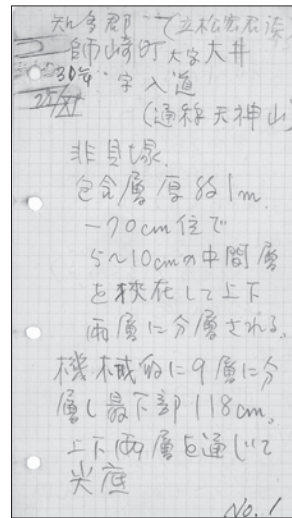 知多郡
師崎町大字大井
30年 字入道
25/XI
(通称天神山)
非貝塚.
包含層厚約1m.
-70cm位で
5~10cmの中間層
を狭在して上下
両層に分層される.
機械的に9層に分
層し最下部118cm.
上下両層を通じて
尖底
No. 1